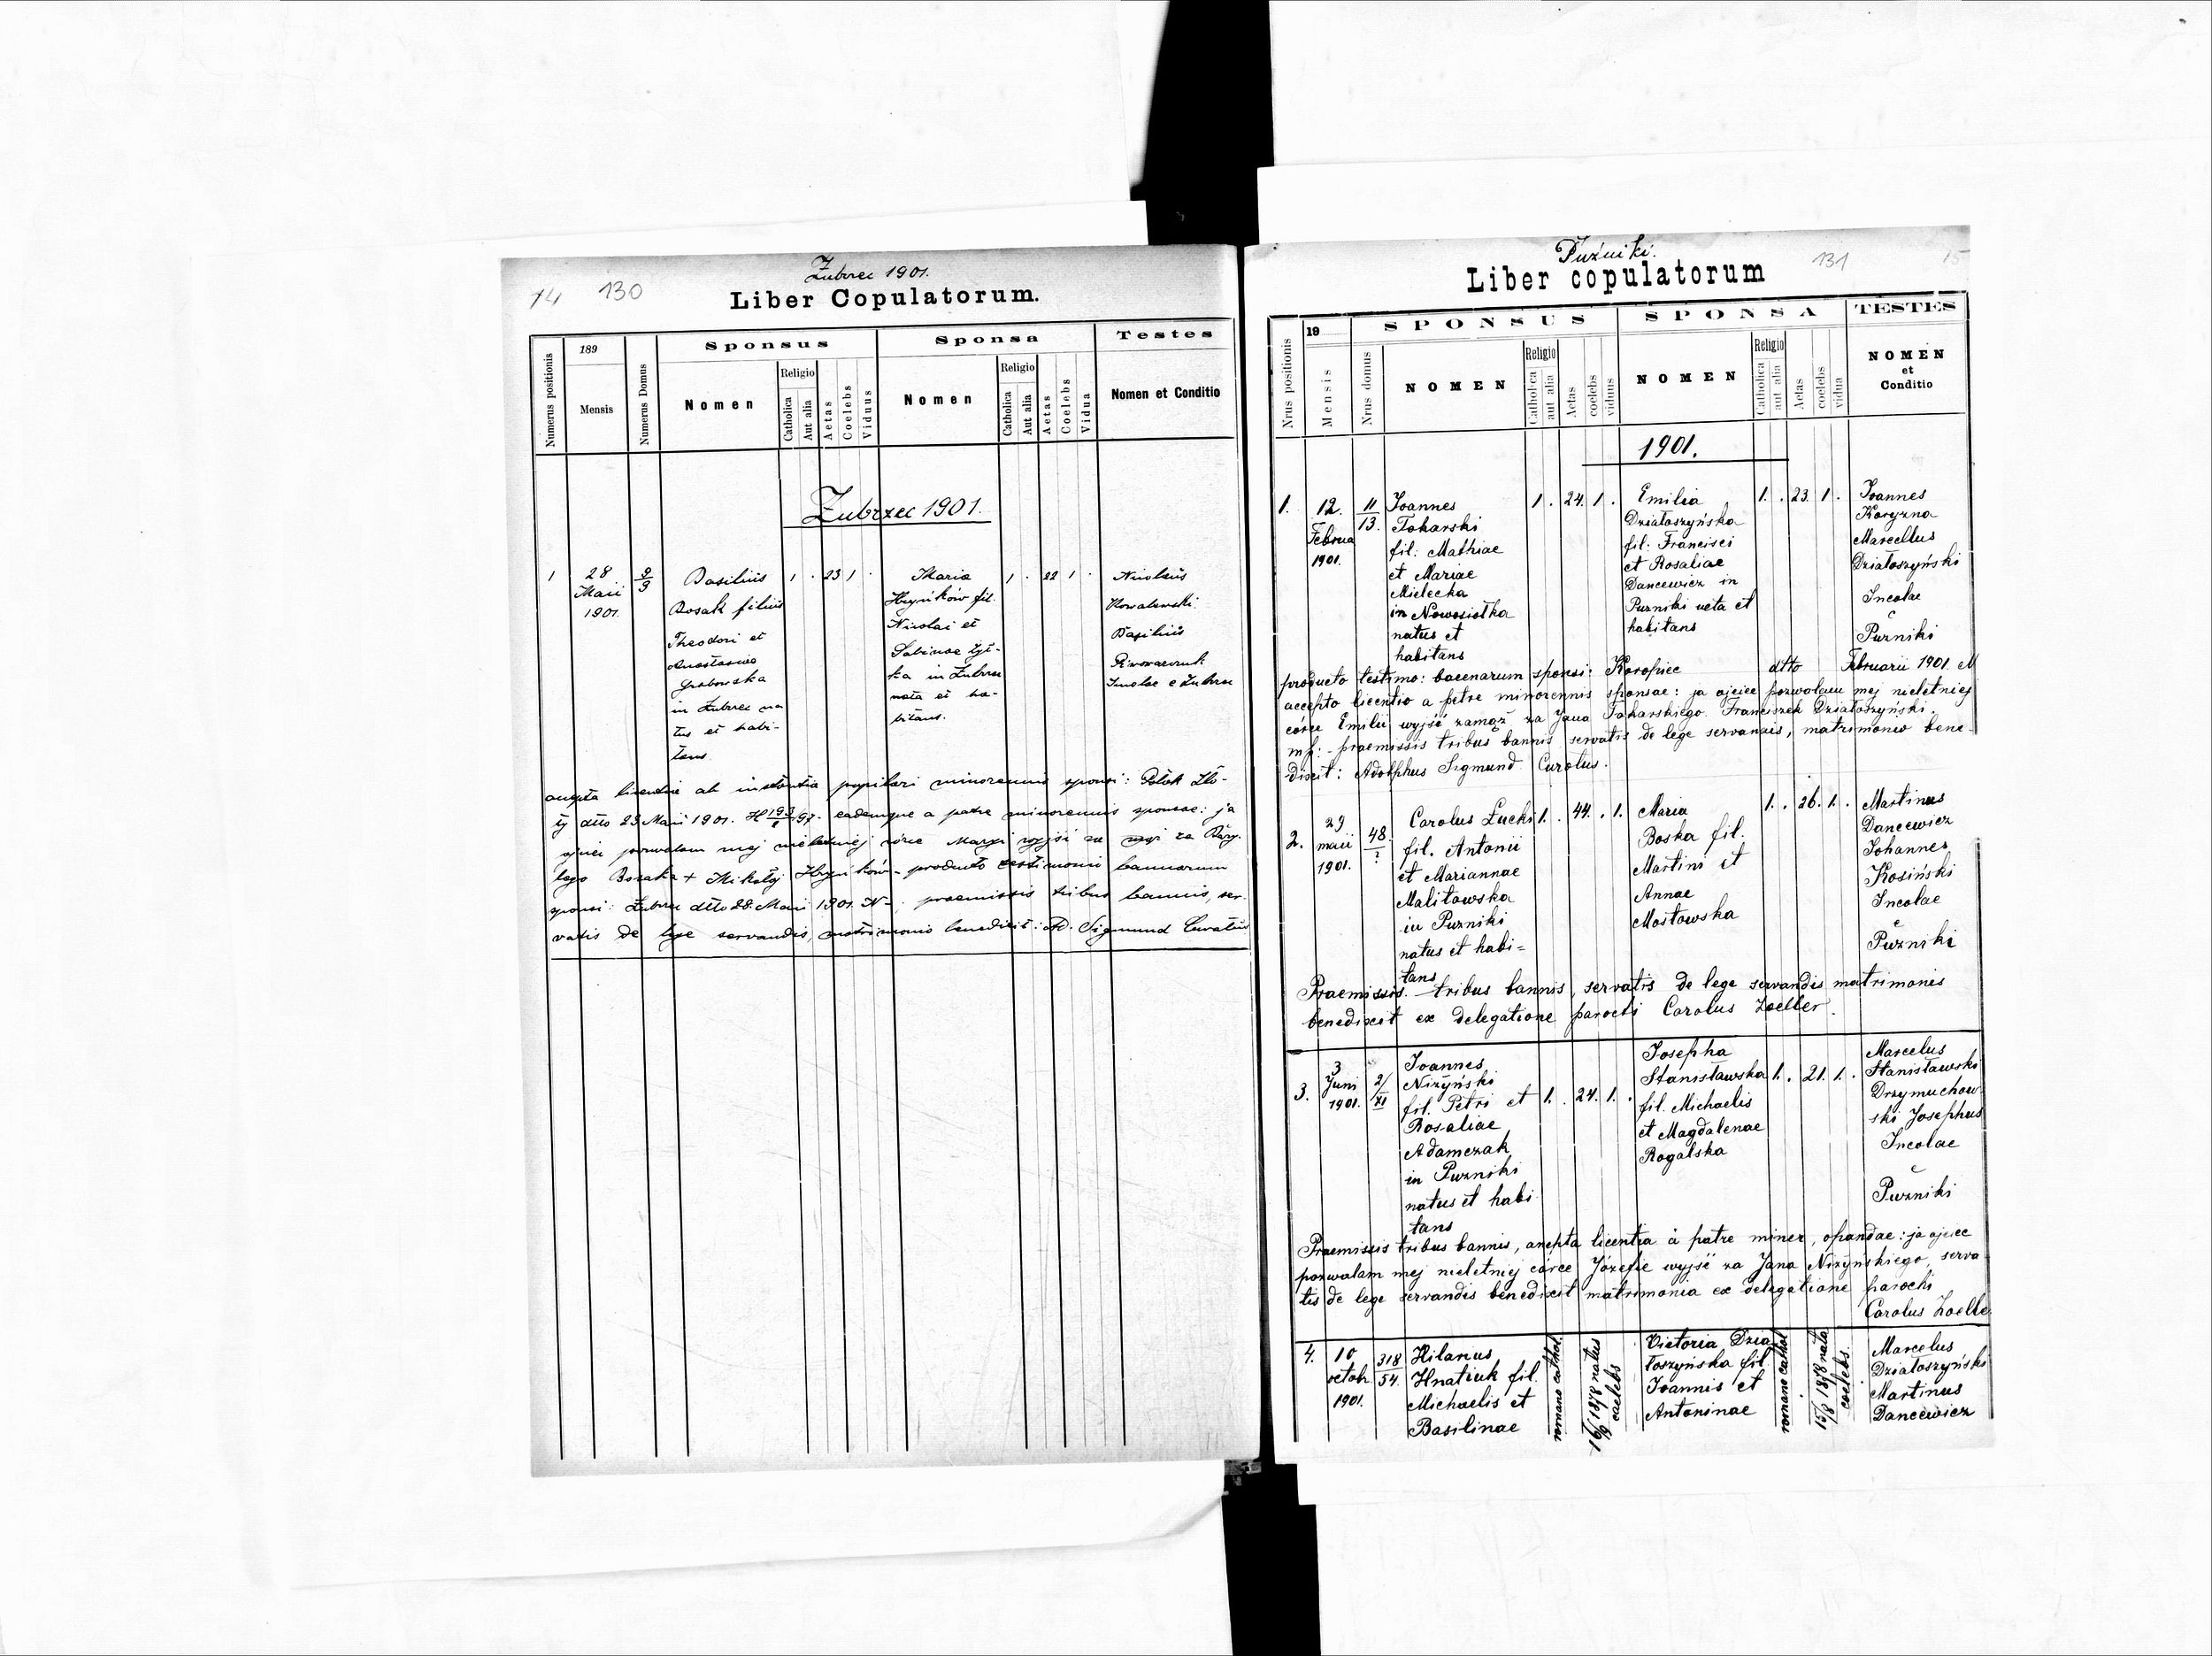 Zubrzec 1901.
14 130
Liber Copulatorum.
Numerus positionis
189
Mensis
Numerus Domus
Sponsus
Nomen
Religio
Catholica
Aut alia
Aetas
Coelebs
Viduus
Sponsa
Nomen
Religio
Catholica
Aut alia
Aetas
Coelebs
Vidua
Testes
Nomen et Conditio
Zubrzec 1901.
1
28
Maii
1901.
9/9
Basilius
Bosak filius
Theodori et
Anastasiae
Grabowska
in Zubrzec na
tus et habi-
tans.
1 . 23 1 .
Maria
Hryńków fil.
Nicolai et
Sabinae
ka in Zubrzec
nata et ha-
bitans.
1 . 22 1 .
Nicolaus
Kowalewski
Basilius
Incolae e Zubrzec
licentia ab instantia pupilari minorennis sponsi: Potok Zło-
ty dtto 23 Maii 1901. eademque a patre minorennis sponsae: ja
ojciec pozwalam mej nieletniej córce Maryi wyjść za mąż za
Bosaka + Mikołaj Hryńków - producto testimonio bannorum
sponsi: Zubrzec dtto 28 Maii 1901. N-; praemissis tribus bannis, ser-
vatis de lege servandis, matrimonio benedixit: Ad. Sigmund Curatus
Puźniki.
131 15
Liber copulatorum
Nrus positionis
19
Mensis
Nrus domus
SPONSUS
NOMEN
Religio
Catholica
aut alia
Aetas
coelebs
viduus
SPONSA
NOMEN
Religio
Catholica
aut alia
Aetas
coelebs
vidua
TESTES
NOMEN
et
Conditio
1901.
1.
12.
Februa
1901.
11/13.
Joannes
Tokarski
fil: Mathiae
et Mariae
Mielecka
in Nowosiołka
natus et
habitans
1 . 24. 1 .
Emilia
Działoszyńska
fil: Francisci
et Rosaliae
Dancewicz in
Puzniki nata et
habitans
1. . 23. 1 .
Joannes
Koryzna
Marcellus
Działoszyński
Incolae
e
Puzniki
producto testimo: sponsi: Koropiec dtto Februarii 1901.
accepto licentio a patre minorennis sponsae: ja ojciec pozwalam mej nieletniej
córce Emilii wyjść zamąż za Jana Tokarskiego. Franciszek Działoszyński.
mp: - praemissis tribus bannis servatis de lege servandis, matrimonio bene-
dixit: Adolphus Sigmund Curatus.
2.
29
maii
1901.
48/?
Carolus Łucki
fil. Antonii
et Mariannae
Malitowska
in Puzniki
natus et habi=
tans
1. . 44. . 1.
Maria
Boska fil.
Martini et
Annae
Mostowska
1. . 26. 1. .
Martinus
Dancewicz
Johannes
Kosiński
Incolae
e
Puzniki
Praemissis tribus bannis, servatis de lege servandis matrimonio
benedixit ex delegatione parochi Carolus Zoeller.
3.
3
Juni
1901.
2/XI
Joannes
Niżyński
fil. Petri et
Rosaliae
Adamczak
in Puzniki
natus et habi
tans
1. . 24. 1. .
Josepha
Stanisławska
fil. Michaelis
et Magdalenae
Rogalska
1. . 21. 1. .
Marcelus
Stanisławski
Drzymuchow-
ski Josephus
Incolae
e
Puzniki
Praemissis tribus bannis, licentia à patre minor, : ja ojciec
pozwalam mej nieletniej córce Józefie wyjść za Jana Niżyńskiego, serva
tis de lege servandis benedixit matrimonio ex delegatione parochi
Carolus Zoelle
4.
10
octob
1901.
318/54.
Hilarius
Hnatiuk fil.
Michaelis et
Basilinae
romano cathol.
natus
caelebs
Victoria Dzia
łoszyńska fil.
Joannis et
Antoninae
romano cathol
15/8 1878 nata
coelebs.
Marcelus
Działoszyński
Martinus
Dancewicz